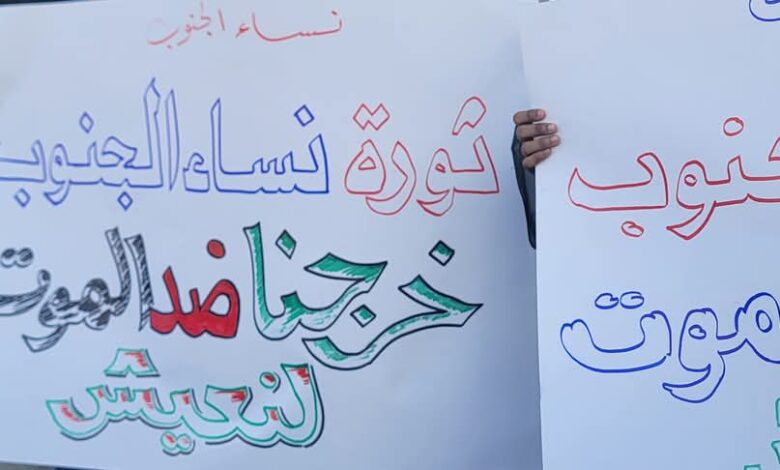 نساء الجنوب
ثورة نساء الجنوب
خرجنا ضد الموت
لنعيش